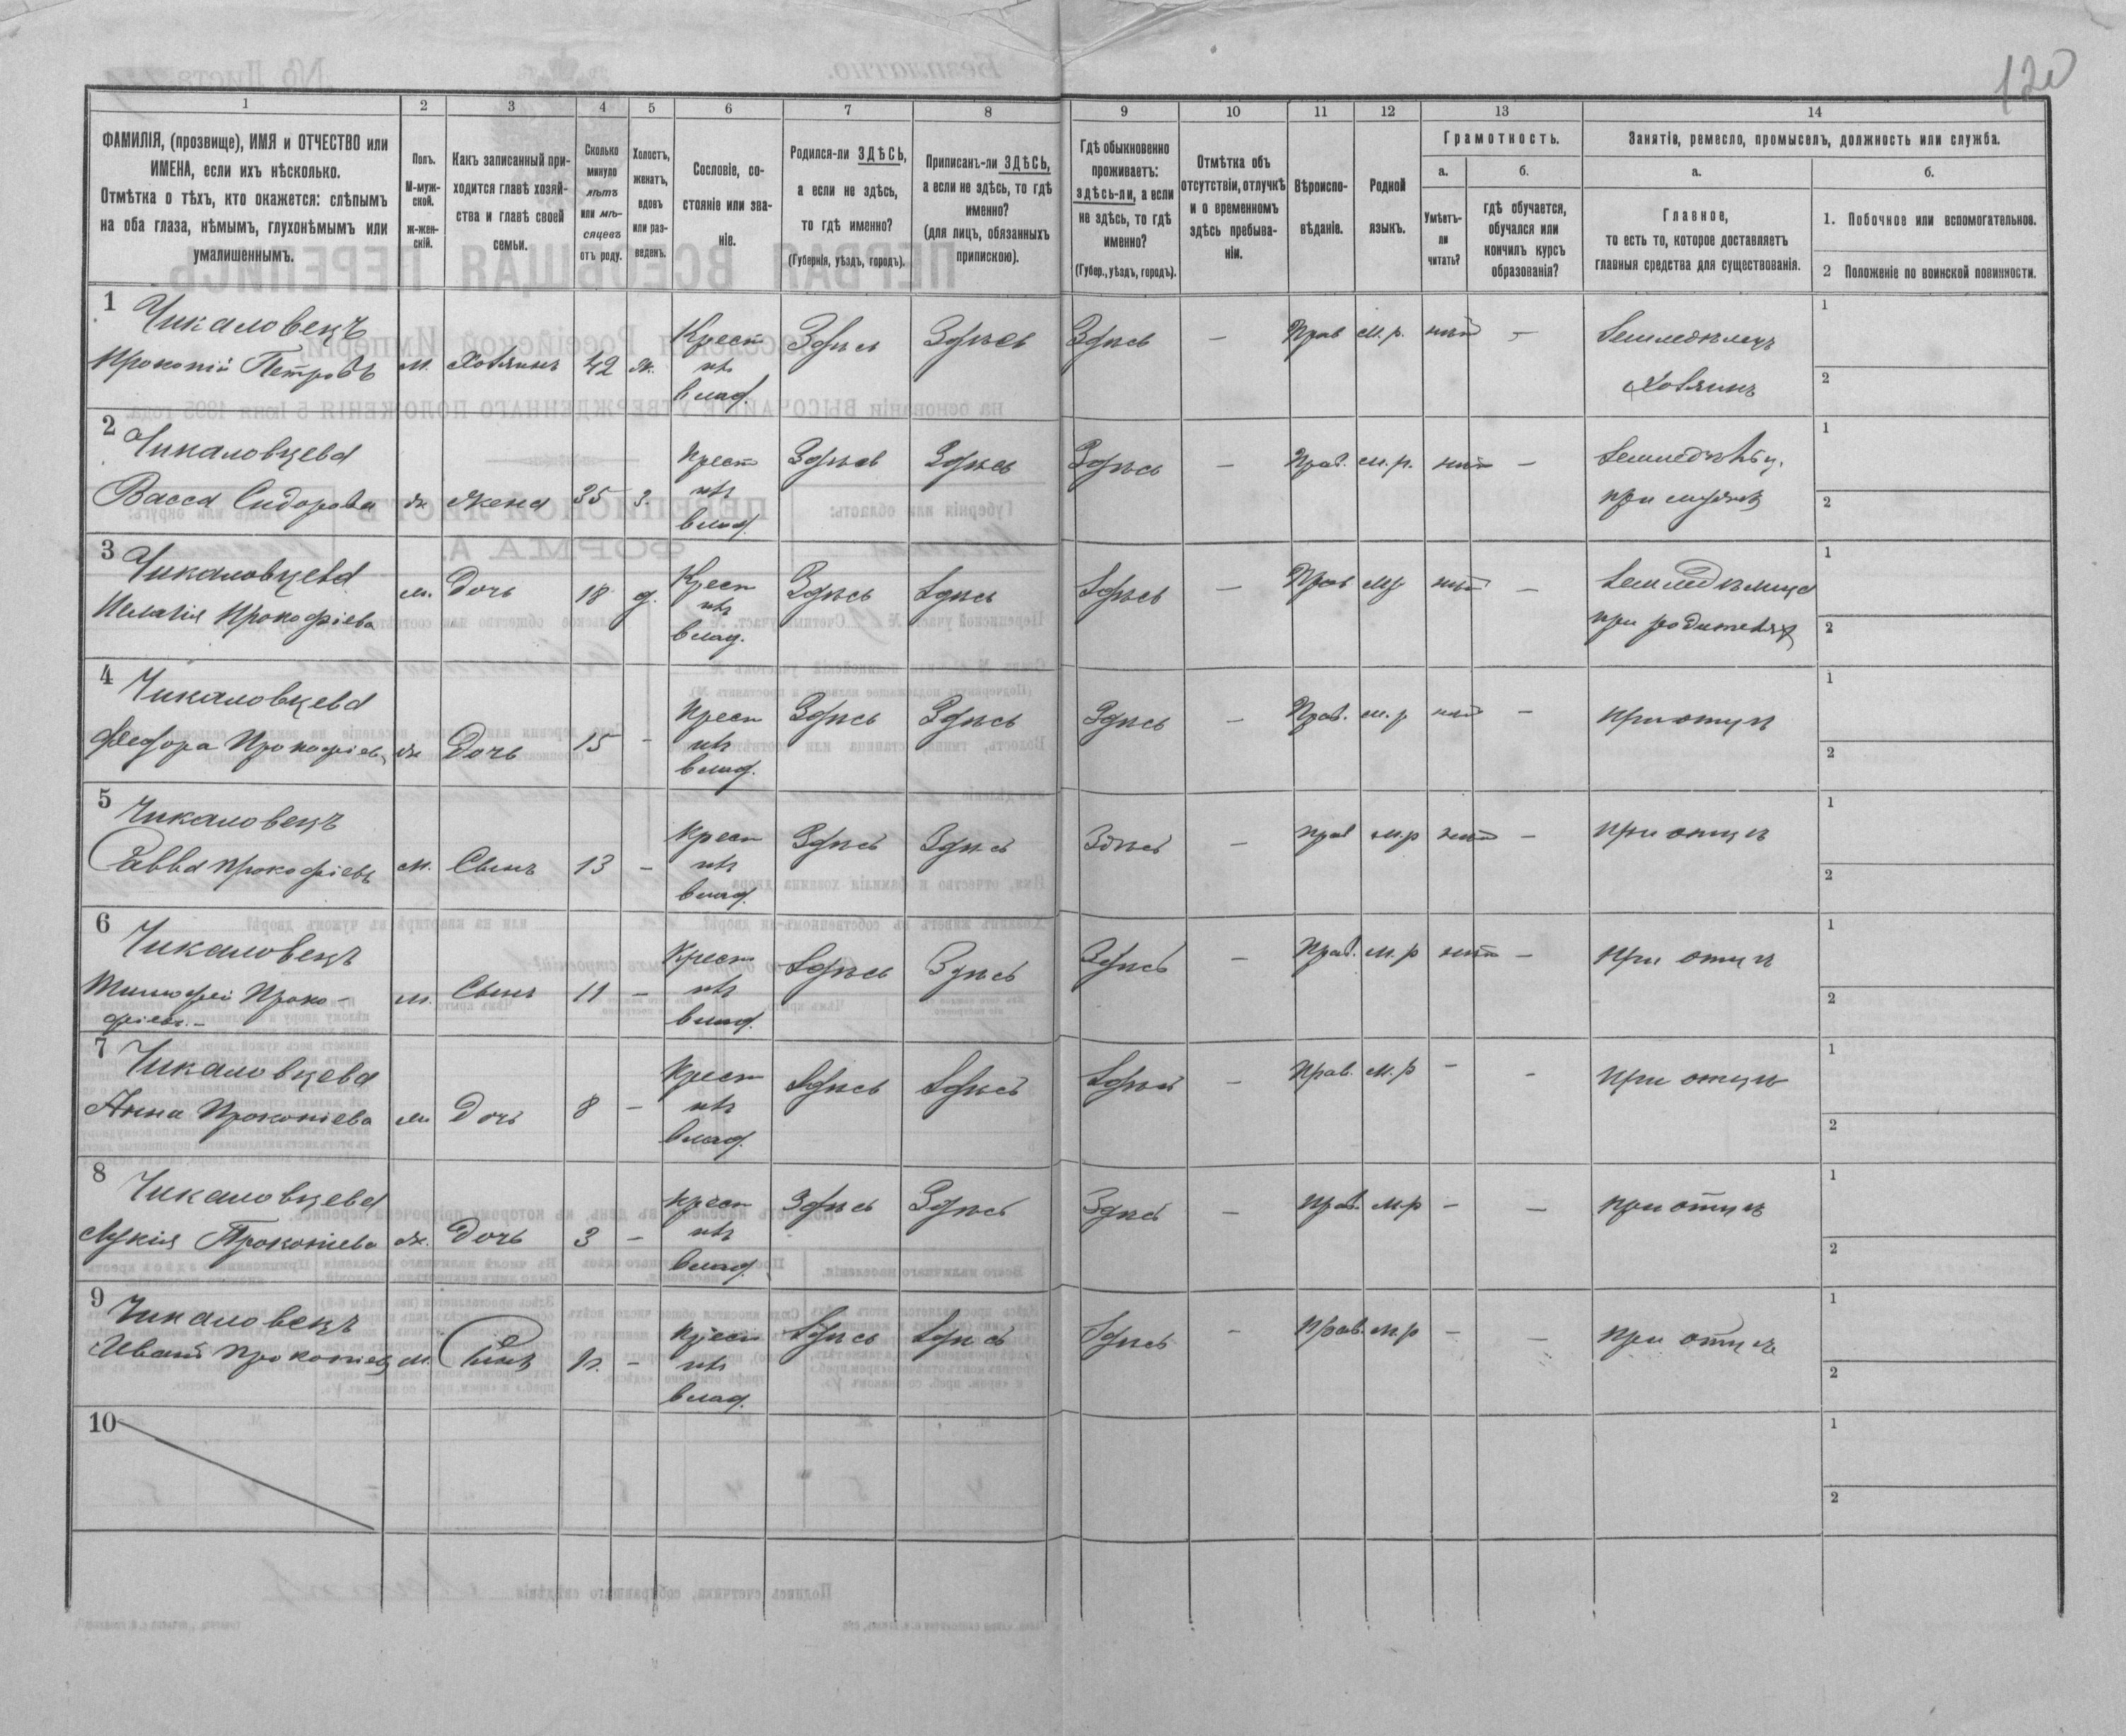 120
1 2 3 4 5 6 7 8 9 10 11 12 13 14
ФАМИЛІЯ, (прозвище), ИМЯ и ОТЧЕСТВО или
ИМЕНА, если ихъ нѣсколько.
Отмѣтка о тѣхъ, кто окажется: слѣпымъ
на оба глаза, нѣмымъ, глухонѣмымъ или
умалишеннымъ.
Полъ.
М-муж-
ской.
ж-жен-
скій.
Какъ записанный при-
ходится главѣ хозяй-
ства и главѣ своей
семьи.
Сколько
минуло
лѣтъ
или мѣ-
сяцевъ
отъ роду.
Холостъ,
женатъ,
вдовъ
или раз-
веденъ.
Сословіе, со-
стояніе или зва-
ніе.
Родился-ли ЗДѢСЬ,
а если не здѣсь,
то гдѣ именно?
(Губернія, уѣздъ, городъ).
Приписанъ-ли ЗДѢСЬ,
а если не здѣсь, то гдѣ
именно?
(для лицъ, обязанныхъ
припискою).
Гдѣ обыкновенно
проживаетъ:
здѣсь-ли, а если
не здѣсь, то гдѣ
именно?
(Губер., уѣздъ, городъ).
Отмѣтка объ
отсутствіи, отлучкѣ
и о временномъ
здѣсь пребыва-
ніи.
Вѣроиспо-
вѣданіе.
Родной
языкъ.
Грамотность.
а.
Умѣетъ-
ли
читать?
б.
гдѣ обучается,
обучался или
кончилъ курсъ
образованія?
Занятія, ремесло, промыселъ, должность или служба.
а.
Главное,
то есть то, которое доставляетъ
главныя средства для существованія.
б.
1. Побочное или вспомогательное.
2 Положеніе по воинской повинности.
1 Чикаловецъ
Прокопій Петровъ м. Хозяинъ 42 ж. Крест Здѣсь Здѣсь Здѣсь — Прав м.р. нѣт — Земледѣлецъ 1
влад. Хозяинъ 2
2 Чикаловцева
Васса Сидорова ж жена 35 з. Крест Здѣсь Здѣсь Здѣсь — Прав. м.р. нѣт — 1
влад. при мужѣ 2
3 Чикаловцева
Пелагія Прокофіева м. Дочь 18 д. Крест Здѣсь Здѣсь Здѣсь — Прав мр нѣт — Земледѣлица 1
влад. при родителях 2
4 Чикаловцева
Федора Прокофіева ж Дочь 15 — Крест Здѣсь Здѣсь Здѣсь — Прав. м.р нѣт — при отцѣ 1
влад. 2
5 Чикаловецъ
Савва Прокофіевъ м. Сынъ 13 — Крест Здѣсь Здѣсь Здѣсь — прав м.р нѣт — при отцѣ 1
влад. 2
6 Чикаловецъ
Тимофей Проко-
фіевъ.- м. Сынъ 11 — Крест Здѣсь Здѣсь Здѣсь — Прав. м.р нѣт — при отцѣ 1
влад. 2
7 Чикаловцева
Анна Прокопіева Дочь 8 — Крест Здѣсь Здѣсь Здѣсь — Прав. м.р — — при отцѣ 1
влад. 2
8 Чикаловцева
Лукія Прокопіева ж. Дочь 3 — Крест Здѣсь Здѣсь Здѣсь — Прав. м.р — — при отцѣ 1
влад. 2
9 Чикаловецъ
Иванъ Прокопіевъ м. Сынъ — Крест Здѣсь Здѣсь Здѣсь — Прав. м.р — — при отцѣ 1
влад. 2
10 1
2